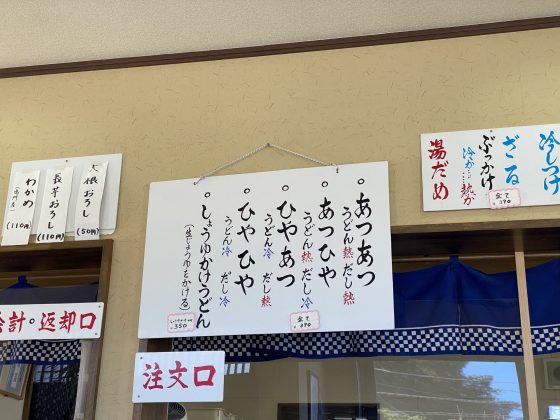 冷しつけ
ざる
ぶっかけ
冷が…熱か
湯だめ
全て
390
○あつあつ
うどん熱 だし熱
○あつひや
うどん熱 だし冷
○ひやあつ
うどん冷 だし熱
○ひやひや
うどん冷 だし冷
○しょうゆかけうどん
(生じょうゆをかける)
全て
390
350
大根おろし
(50円)
長芋おろし
(110円)
わかめ
(鳴門産)
(110円)
会計・返却口
注文口